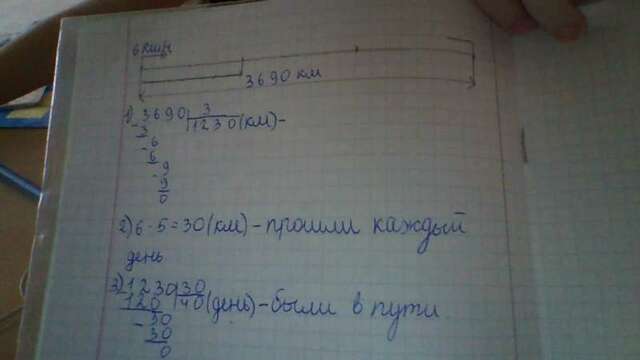 6 км/ч
3690 км
1) 3690 | 3
- 3 | 1230 (км) -
- 6
6
- 9
9
0
2) 6 · 5 = 30 (км) - прошли каждый
день
3) 1230 | 30
120 | 40 (день) - были в пути.
- 30
30
0